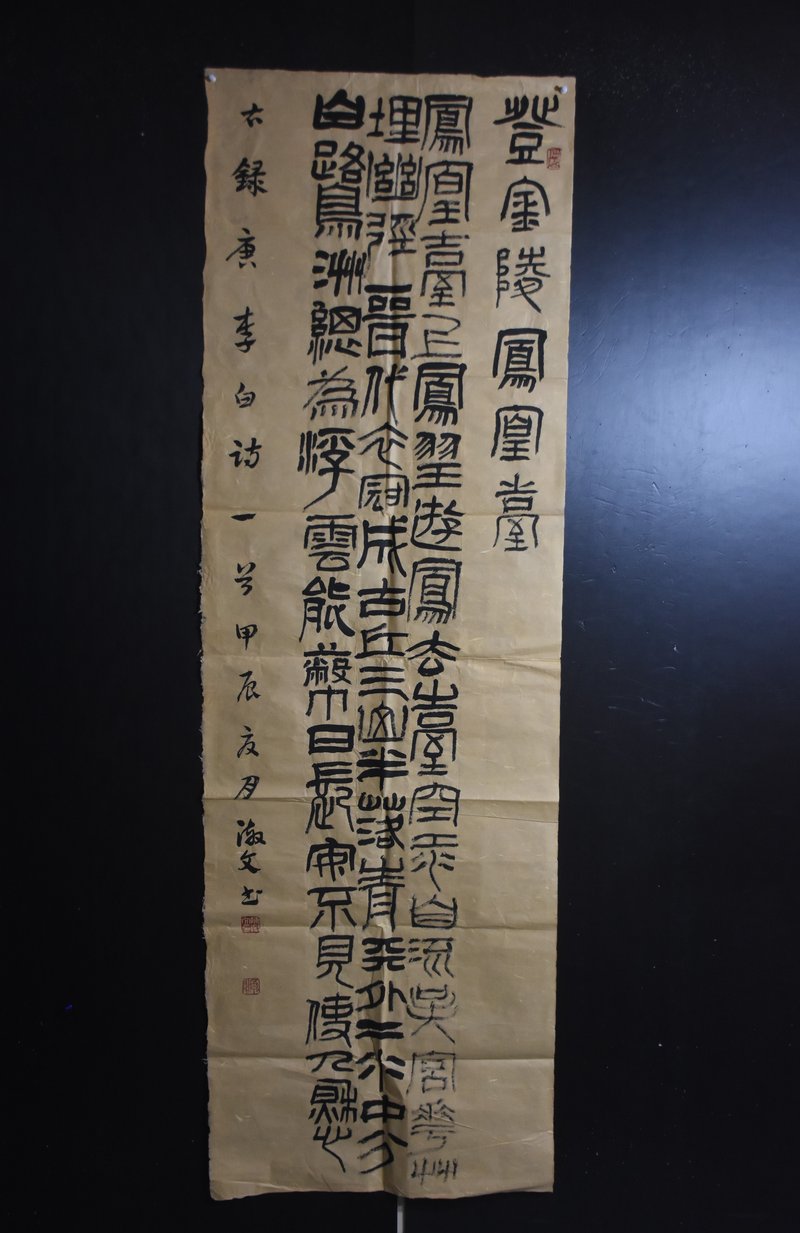 登金陵鳳凰臺
鳳凰臺上鳳凰遊鳳去臺空江自流吳宮花草
埋幽徑晉代衣冠成古丘三山半落青天外二水中分
白鷺洲總為浮雲能蔽日長安不見使人愁
右録唐李白诗一首甲辰夏月文书